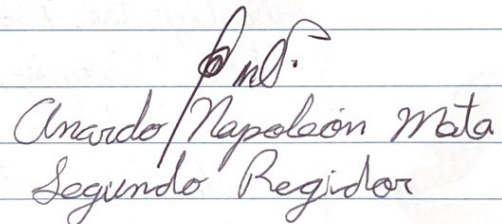 Anardo Napoleón Mata
Segundo Regidor